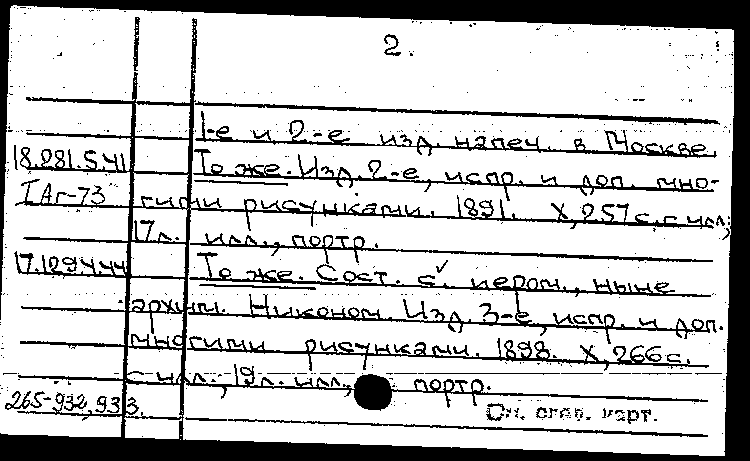 2.
1-е и 2-е изд. напеч. в Москве.
18.281.5.41 То же. Изд. 2-е, испр. и доп. мно-
I Аг-73 гими рисунками. 1891. X, 257 с. с илл.;
17 л. илл., портр.
17.129.4.44 То же. Сост. с. иером., ныне
архим. Никоном. Изд. 3-е, испр. и доп.
многими рисунками. 1898. X, 266 с.
с илл., 19 л. илл., портр.
265-932, 933. См. след. карт.